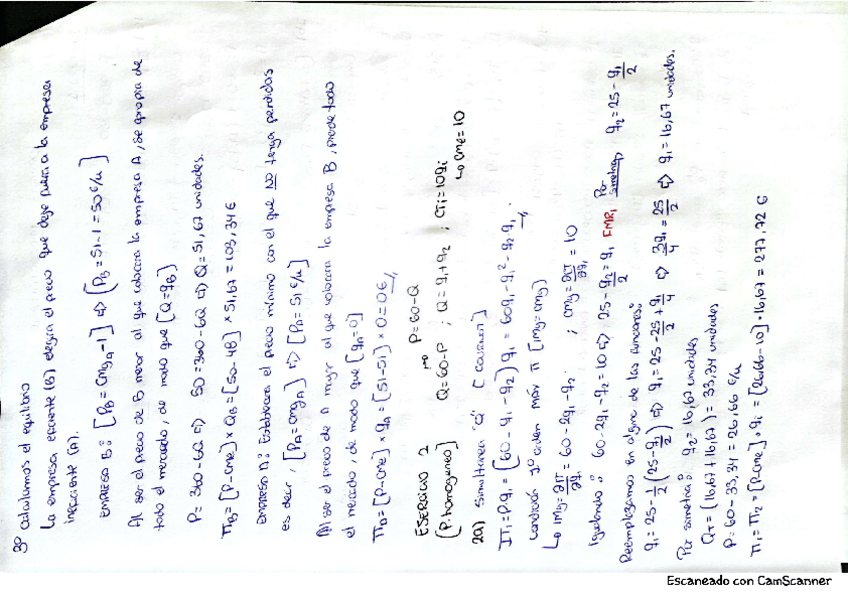 3º Calculamos el equilibrio
La empresa eficiente (B) elegirá el precio que deje fuera a la empresa
ineficiente (A).
EMPRESA B: [PB = CmgA - 1] ⇨ [PB = 51 - 1 = 50 €/u]
Al ser el precio de B menor al que colocaría la empresa A, se apropia de
todo el mercado, de modo que [Q = qB]
P = 360 - 6Q ⇨ 50 = 360 - 6Q ⇨ Q = 51,67 unidades.
πB = [P - Cme] × QB = [50 - 48] × 51,67 = 103,34 €
EMPRESA A: Establecerá el precio mínimo con el que NO tenga pérdidas
es decir, [PA = CmgA] ⇨ [PA = 51 €/u]
Al ser el precio de A mayor al que colocara la empresa B, pierde todo
el mercado, de modo que [qA = 0]
πA = [P - Cme] × qA = [51 - 51] × 0 = 0 €
EJERCICIO 2
[P. homogéneo]
↱ P = 60 - Q
Q = 60 - P ; Q = q1 + q2 ; CTi = 10qi
↳ Cme = 10
2a) Simultánea "Q" [COURNOT]
IT1 = P·q1 = [60 - q1 - q2] q1 = 60q1 - q1² - q2·q1
Condición 1º orden máx π [Img = Cmg]
↳ Img = ∂IT/∂q1 = 60 - 2q1 - q2 ; Cmg = ∂CT/∂q1 = 10
Igualando: 60 - 2q1 - q2 = 10 ⇨ 25 - q2/2 = q1 FMR1 Por simetría q2 = 25 - q1/2
Reemplazamos en alguna de las funciones:
q1 = 25 - 1/2 (25 - q1/2) ⇨ q1 = 25 - 25/2 + q1/4 ⇨ 3q1/4 = 25/2 ⇨ q1 = 16,67 unidades.
Por simetría: q2 = 16,67 unidades
QT = (16,67 + 16,67) = 33,34 unidades
P = 60 - 33,34 = 26,66 €/u
π1 = π2 = [P - Cme] · qi = [26,66 - 10] · 16,67 = 277,72 €
Escaneado con CamScanner